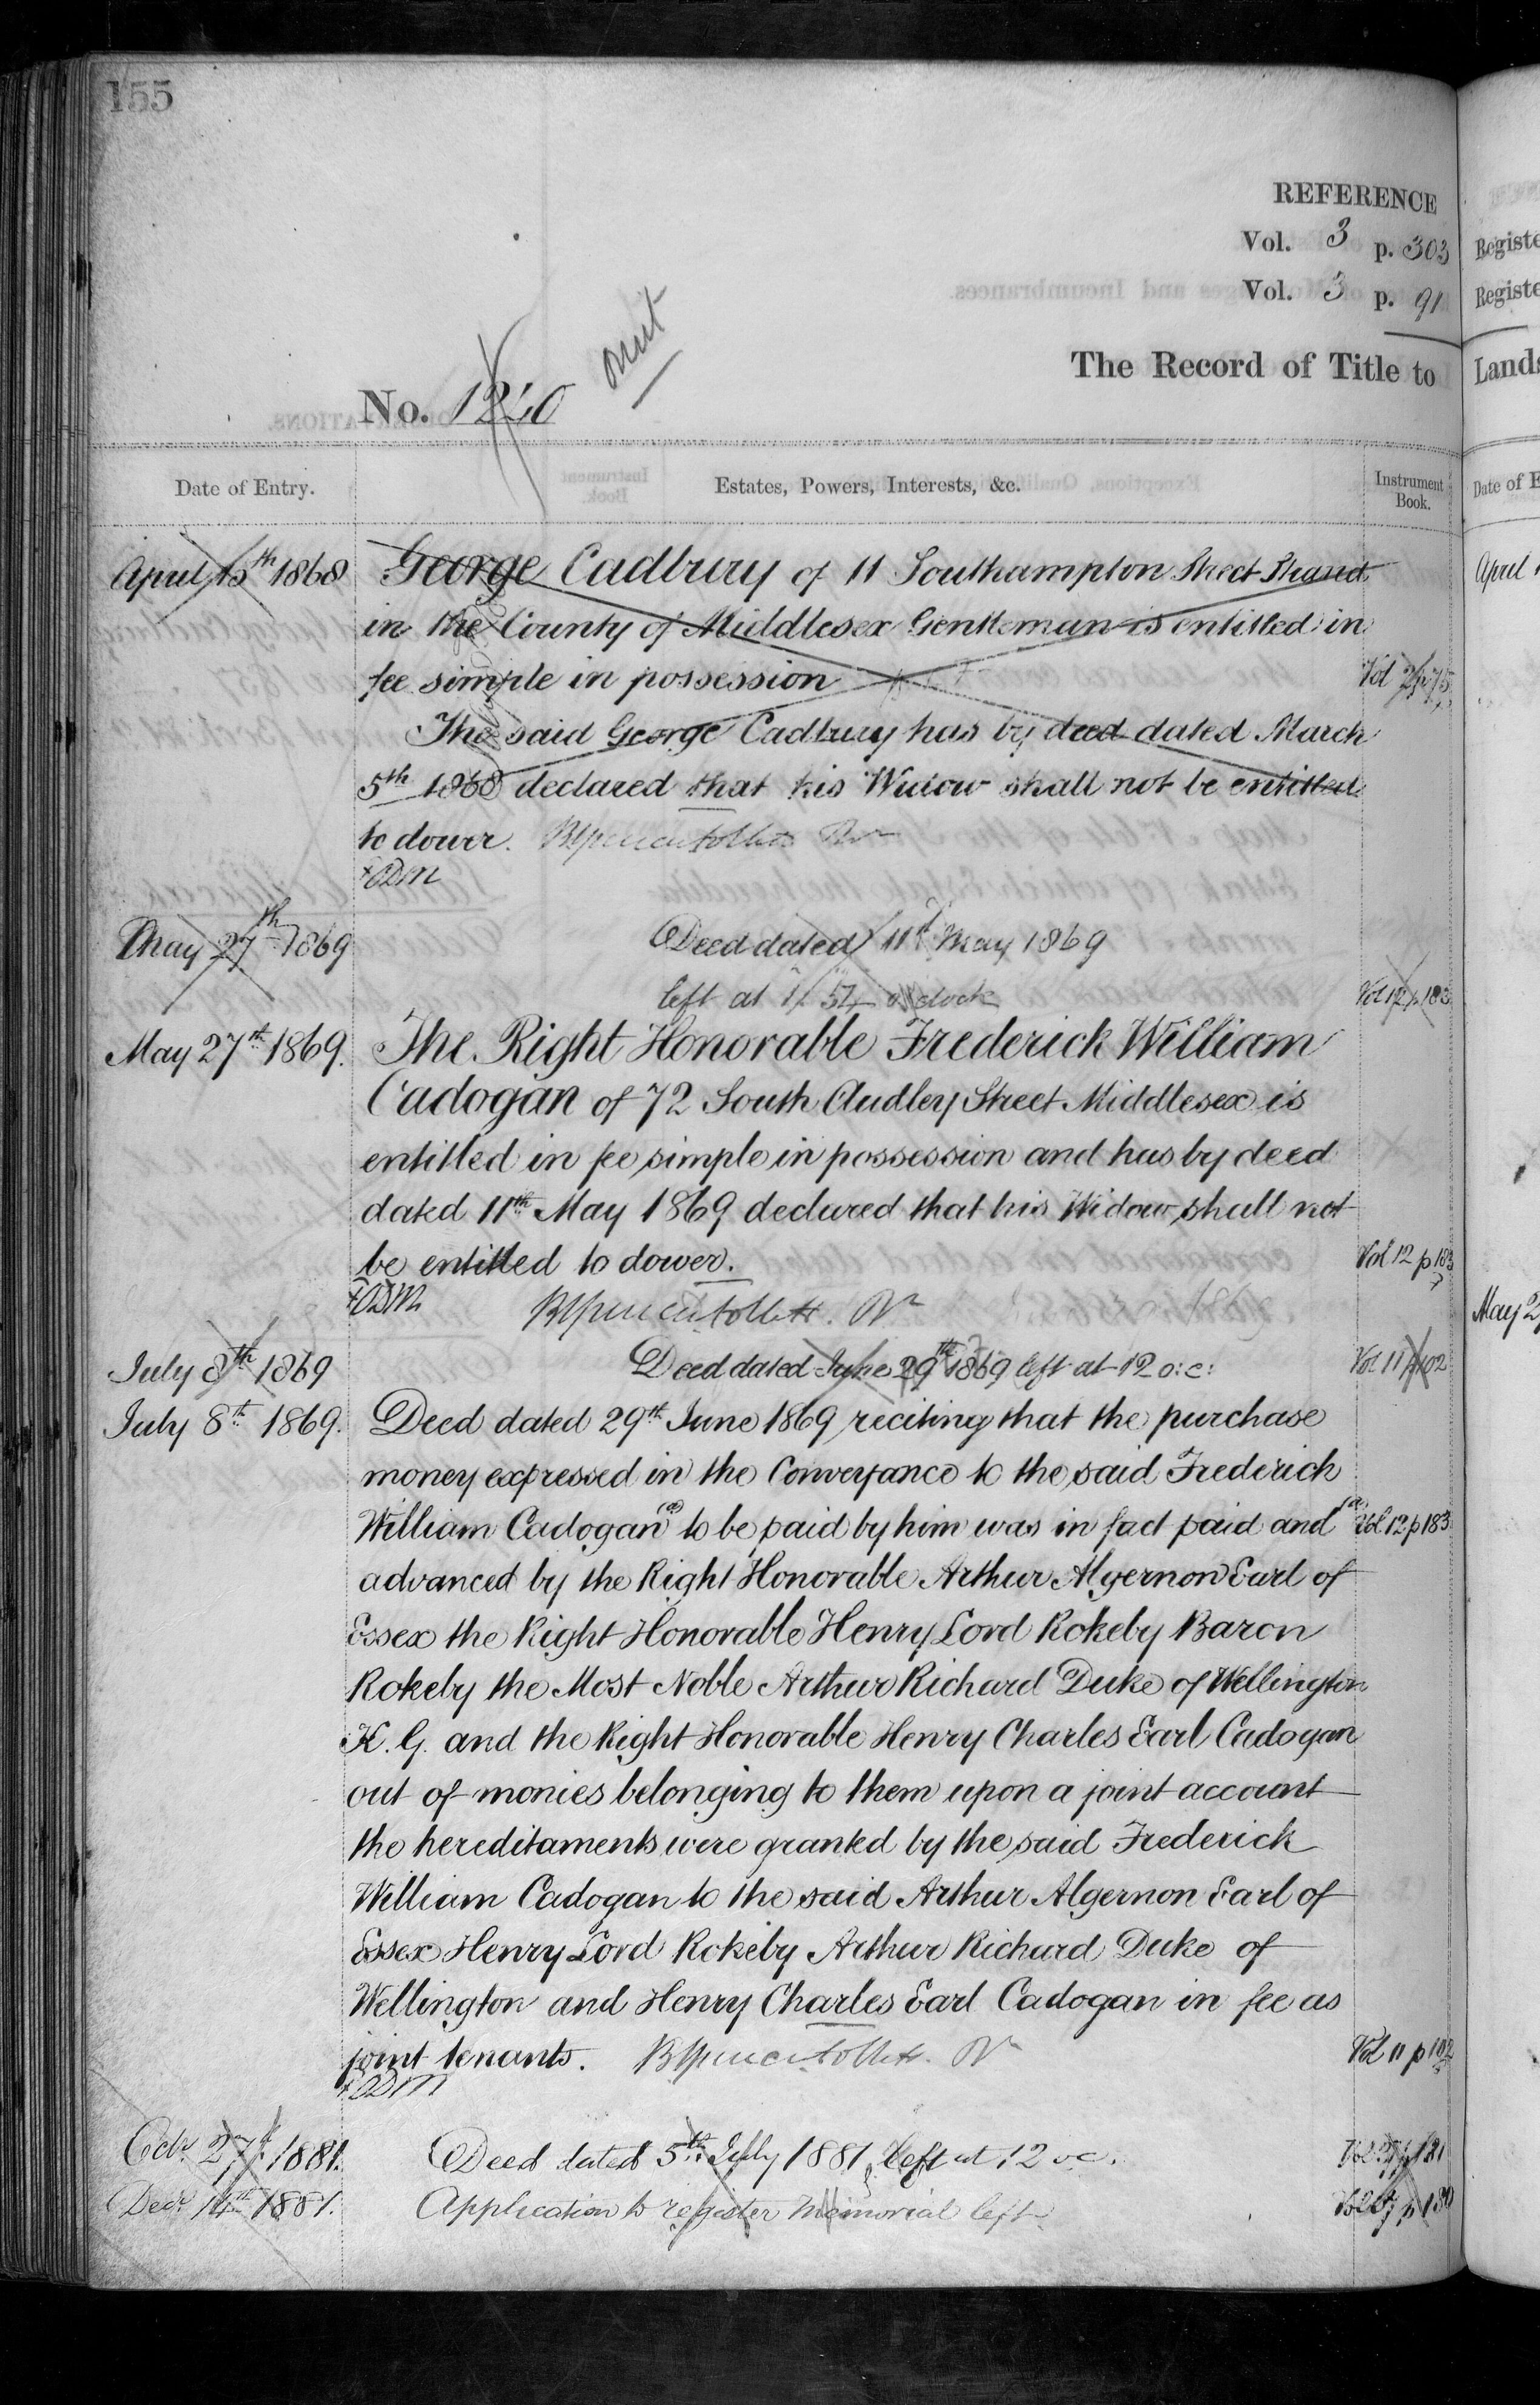 155
REFERENCE
Vol. 3 p. 303
Vol. 3 p. 91
omit
The Record of Title to
No. 1240
Date of Entry.
Estates, Powers, Interests, &c.
Instrument Book.
April 15th 1868 George Cadbury of 11 Southampton Street Strand
in the County of Middlesex Gentleman is entitled in
fee simple in possession Vol
The said George Cadbury has by deed dated March
5th 1868 declared that his Widow shall not be entitled
to dower.
May 27th 1869 Deed dated 11th May 1869
left at o'clock Vol 12 p 183
May 27th 1869. The Right Honorable Frederick William
Cadogan of 72 South Audley Street Middlesex is
entitled in fee simple in possession and has by deed
dated 11th May 1869 declared that his Widow shall not
be entitled to dower. Vol 12 p 183
July 8th 1869 Deed dated June 29th 1869 left at 12 o:c: Vol 11 p 102
July 8th 1869. Deed dated 29th June 1869 reciting that the purchase
money expressed in the Conveyance to the said Frederick
William Cadogan (a) to be paid by him was in fact paid and (a) Vol 12 p 183
advanced by the Right Honorable Arthur Algernon Earl of
Essex the Right Honorable Henry Lord Rokeby Baron
Rokeby the Most Noble Arthur Richard Duke of Wellington
K.G. and the Right Honorable Henry Charles Earl Cadogan
out of monies belonging to them upon a joint account
the hereditaments were granted by the said Frederick
William Cadogan to the said Arthur Algernon Earl of
Essex Henry Lord Rokeby Arthur Richard Duke of
Wellington and Henry Charles Earl Cadogan in fee as
joint tenants. Vol 11 p 102
Octr. 27th 1881. Deed dated 5th July 1881 left at 12 oc.
Decr. 14th 1881. Application to register Memorial left
Registe
Registe
Lands
Date of E
April
May 2